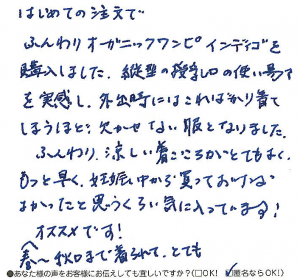 はじめての注文で
ふんわりオーガニックワンピ インディゴを
購入しました。縦型の授乳口の使い易さ
を実感し、外出時にはこればかり着て
しまうほど、欠かせない服となりました。
ふんわり、涼しい着ごこちがとてもよく、
もっと早く、妊娠中から買っておけば
よかったと思うくらい気に入っています!
オススメです!
春～秋口まで着られて、とても
●あなた様の声をお客様にお伝えしても宜しいですか?(□OK! ✓匿名ならOK!)